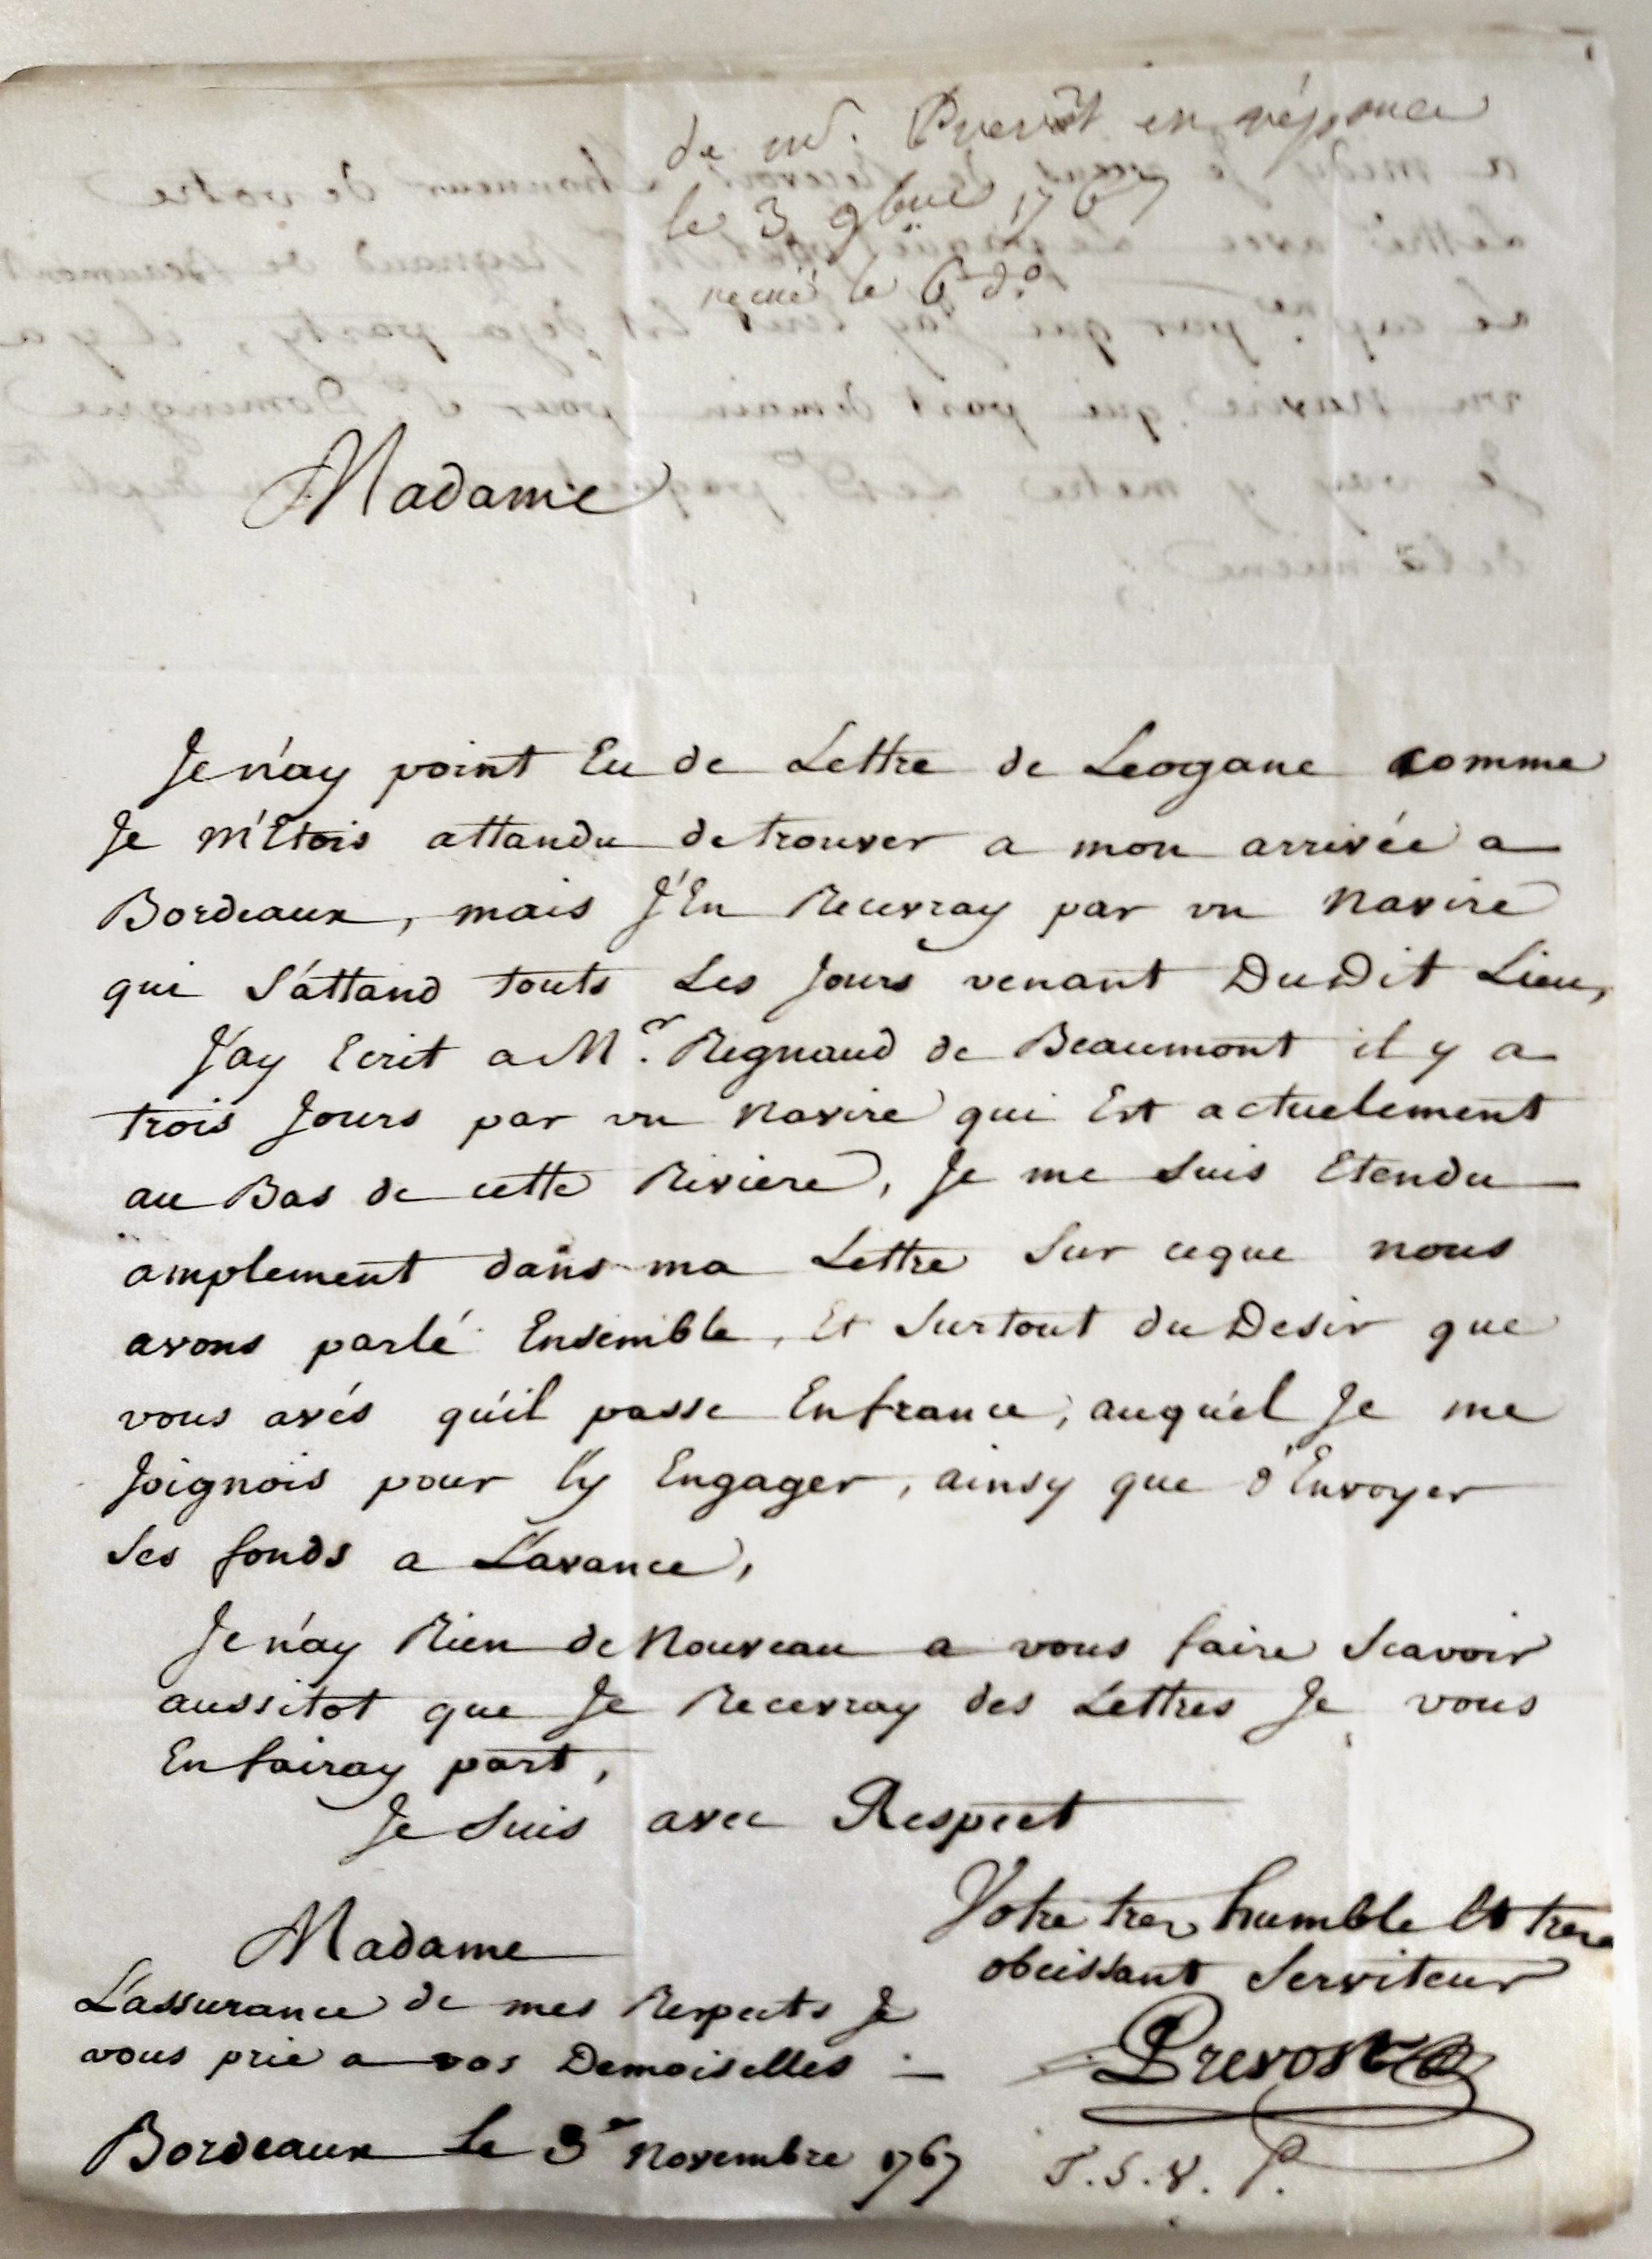 de mr. Prevôt en réponce
le 3 9bre 1767
receuë le 6 do.
Madame
Je n'ay point Eu de Lettre de Leogane comme
Je m'Etois attandu de trouver a mon arrivée a
Bordeaux, mais J'En Recevray par un Navire
qui S'attand touts Les Jours venant Du Dit Lieu,
J'ay Ecrit a Mr. Regnaud de Beaumont il y a
trois Jours par un Navire qui Est actuelement
au Bas de cette Riviere, Je me Suis Etendu
amplement dans ma Lettre Sur ceque nous
avons parlé Ensemble, Et Surtout du Desir que
vous avés qu'il passe En france, auqu'el Je me
Joignois pour l'y Engager, ainsy que d'Envoyer
Ses fonds a L'avance,
Je n'ay Rien de Nouveau a vous faire Scavoir
aussitot que Je Recevray des Lettres Je vous
En fairay part,
Je Suis avec Respect
Madame
Votre tres humble Et tres
obeissant Serviteur
Prevost
L'assurance de mes Respects Je
vous prie a vos Demoiselles
Bordeaux Le 3r Novembre 1767
T.S.V.P.